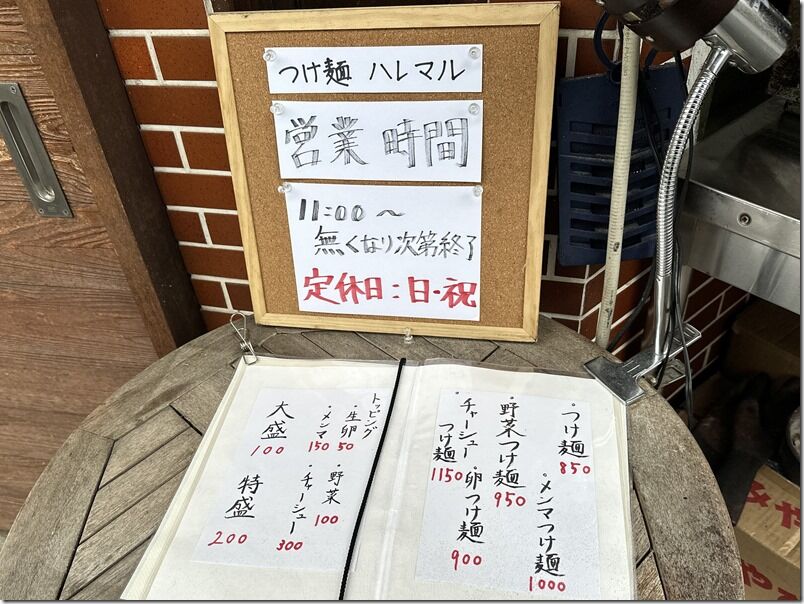 つけ麺 ハレマル
営業時間
11:00～
無くなり次第終了
定休日:日・祝
・つけ麺
850
・メンマつけ麺
1000
・野菜つけ麺
950
・卵つけ麺
900
・チャーシューつけ麺
1150
トッピング
・生卵
50
・メンマ
150
・野菜
100
・チャーシュー
300
大盛
100
特盛
200